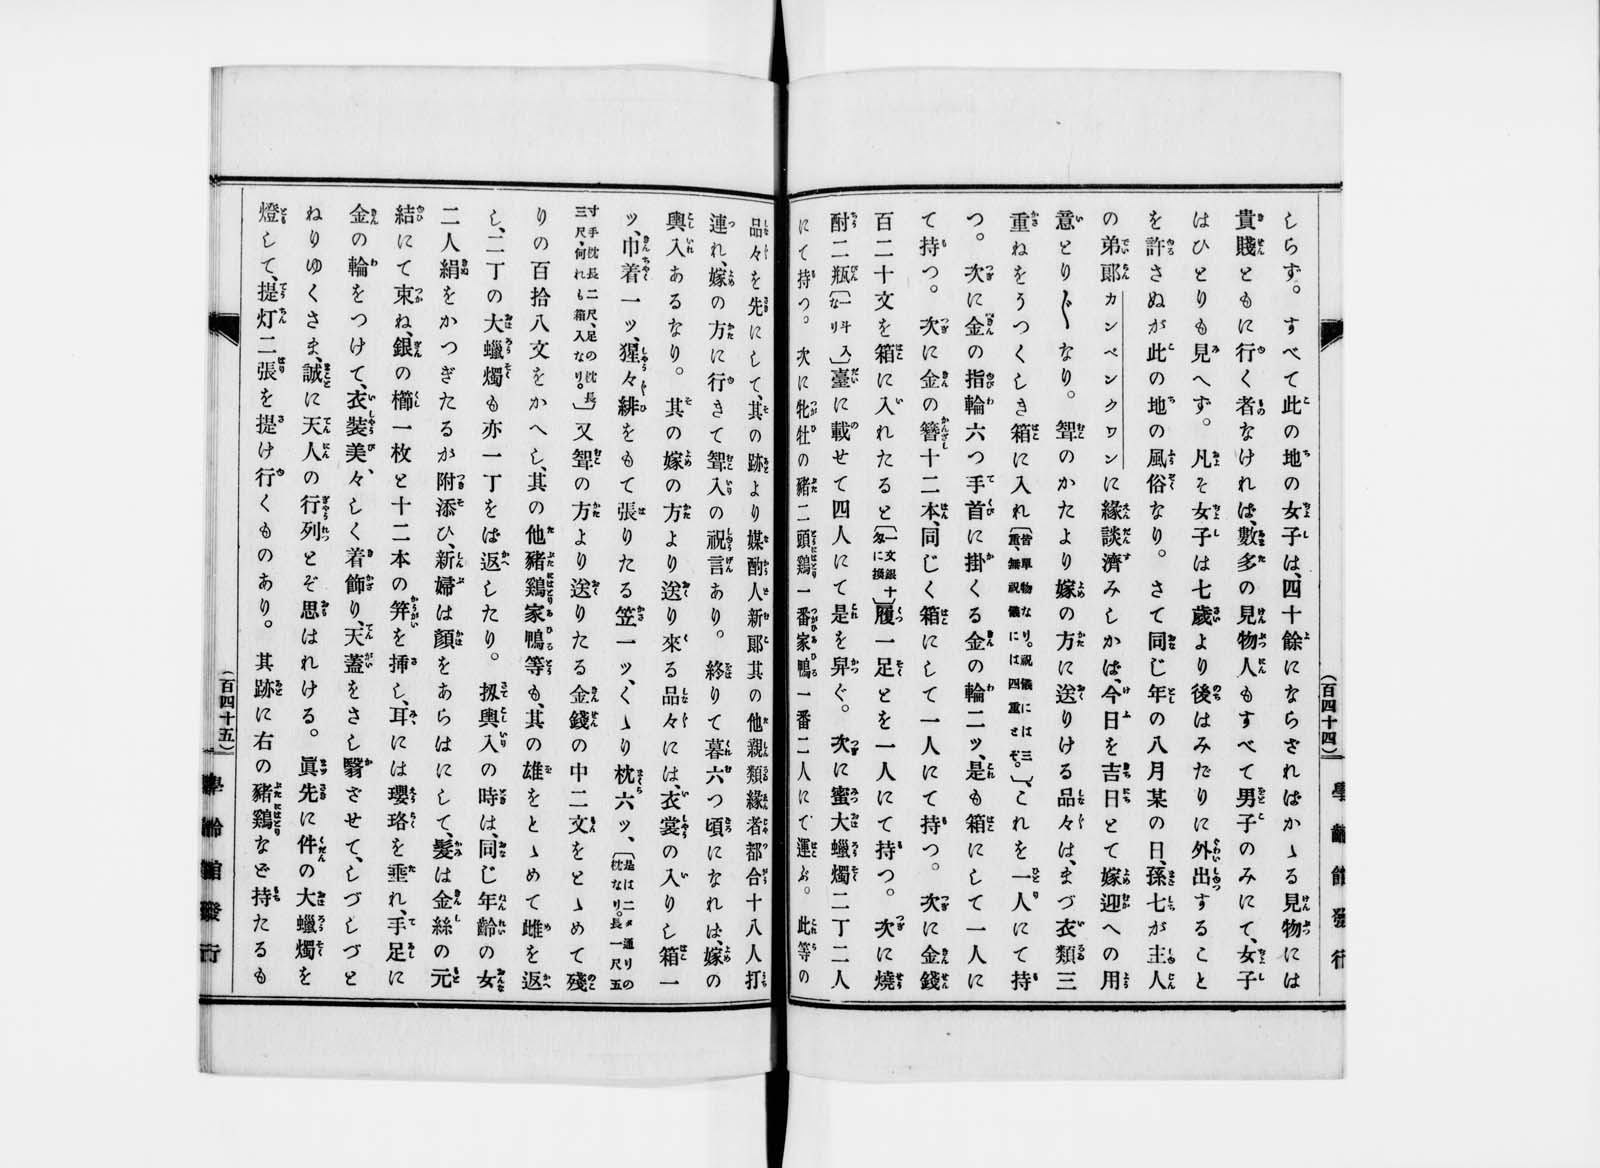 しらず。すべて此の地の女子は、四十餘にならさればかゝる見物には
貴賤ともに行く者なけれは、數多の見物人もすべて男子のみにて、女子
はひとりも見へず。凡そ女子は七歲より後はみだりに外出すること
を許さぬが此の地の風俗なり。さて同じ年の八月某の日、孫七が主人
の弟郞カンベンクワンに緣談濟みしかば、今日を吉日とて嫁迎への用
意とり〲なり。聟のかたより嫁の方に送りける品々は、まづ衣類三
重ねをうつくしき箱に入れ〔皆單物なり。祝儀には三重、無祝儀には四重とぞ。〕、これを一人にて持
つ。次に金の指輪六つ手首に掛くる金の輪二ッ、是も箱にして一人に
て持つ。次に金の簪十二本、同じく箱にして一人にて持つ。次に金錢
百二十文を箱に入れたると〔一文銀十匁に換〕履一足とを一人にて持つ。次に燒
酎二瓶〔一斗入なり〕臺に載せて四人にて是を舁ぐ。次に蜜大蠟燭二丁二人
にて持つ。次に牝牡の豬二頭鷄一番家鴨一番二人にて運ぶ。此等の
(百四十四)
學齡館發行
品々を先にして、其の跡より媒酌人新郞其の他親類緣者都合十八人打
連れ、嫁の方に行きて聟入の祝言あり。終りて暮六つ頃になれは、嫁の
輿入あるなり。其の嫁の方より送り來る品々には、衣裳の入りし箱一
ッ、巾着一ッ、猩々緋をもて張りたる笠一ッ、くゝり枕六ッ、〔是は二タ通りの枕なり。長一尺五
寸手枕長二尺、足の枕長三尺、何れも箱入なり。〕又聟の方より送りたる金錢の中二文をとゝめて殘
りの百拾八文をかへし、其の他豬鷄家鴨等も、其の雄をとゝめて雌を返
し、二丁の大蠟燭も亦一丁をば返したり。扨輿入の時は、同じ年齡の女
二人絹をかつぎたるが附添ひ、新婦は顏をあらはにして、髮は金絲の元
結にて束ね、銀の櫛一枚と十二本の笄を揷し、耳には瓔珞を垂れ、手足に
金の輪をつけて、衣裝美々しく着飾り、天蓋をさし翳ざせて、しづしづと
ねりゆくさま、誠に天人の行列とぞ思はれける。眞先に件の大蠟燭を
燈して、提灯二張を提け行くものあり。其跡に右の豬鷄など持たるも
(百四十五)
學齡館發行